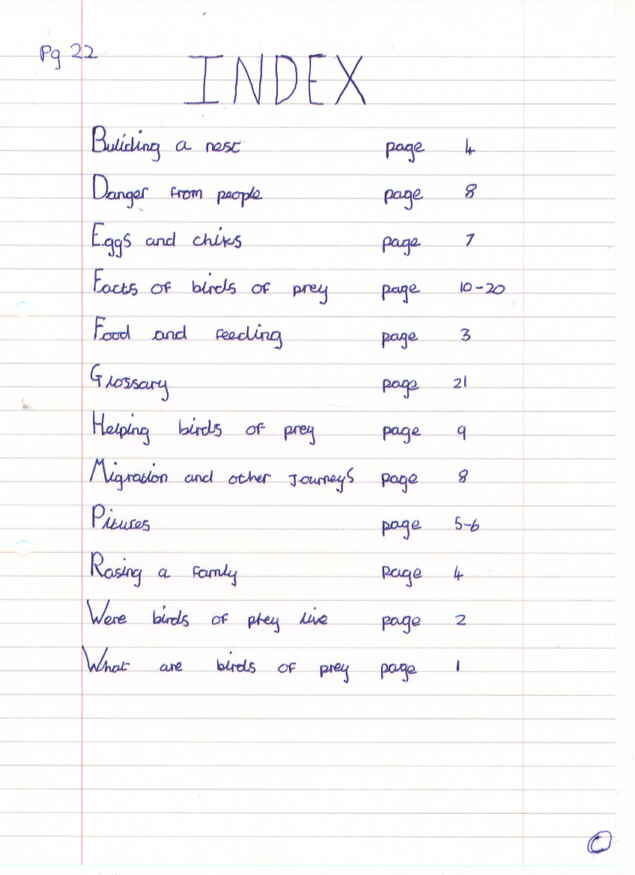 Pg 22
INDEX
Buliding a nest page 4
Danger from people page 8
Eggs and chiks page 7
Facts of birds of prey page 10-20
Food and feeding page 3
Glossary page 21
Helping birds of prey page 9
Migration and other Journeys page 8
Pitures page 5-6
Rasing a famly page 4
Were birds of prey live page 2
What are birds of prey page 1